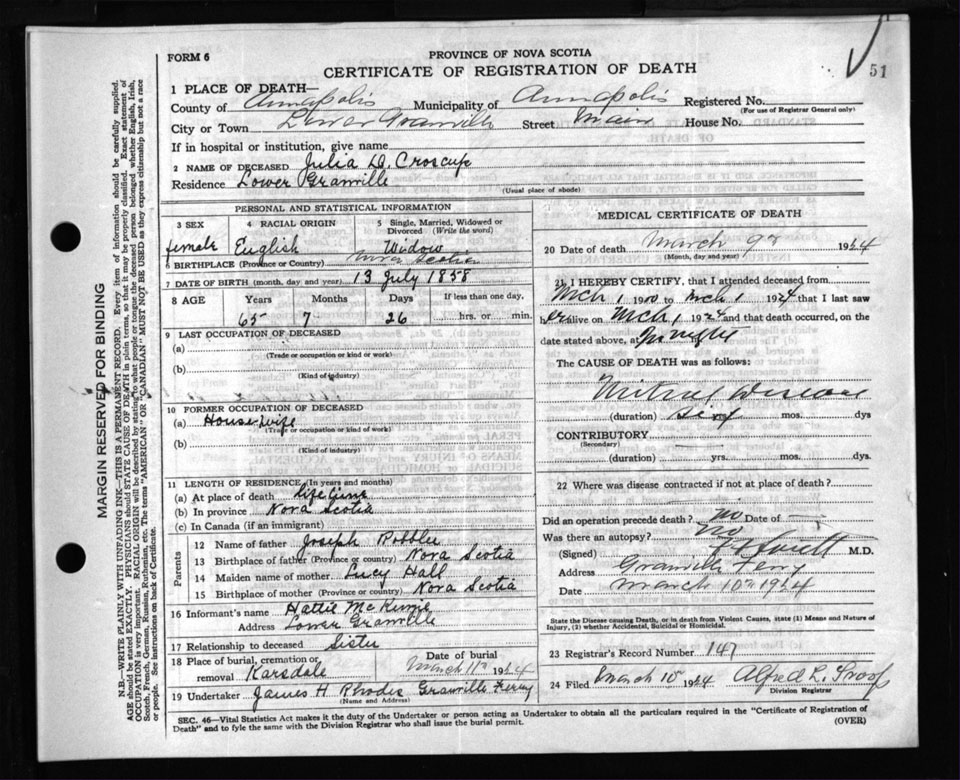 51
FORM 6
PROVINCE OF NOVA SCOTIA
CERTIFICATE OF REGISTRATION OF DEATH
1 PLACE OF DEATH—
County of Annapolis Municipality of Annapolis Registered No.
(For use of Registrar General only)
City or Town Lower Granville Street Main House No.
If in hospital or institution, give name
2 NAME OF DECEASED Julia D. Croscup
Residence Lower Granville
(Usual place of abode)
PERSONAL AND STATISTICAL INFORMATION
3 SEX 4 RACIAL ORIGIN 5 Single, Married, Widowed or Divorced (Write the word)
female English Widow
6 BIRTHPLACE (Province or Country) Nova Scotia
7 DATE OF BIRTH (month, day and year) 13 July 1858
8 AGE Years Months Days If less than one day,
65 7 26 hrs. or min.
9 LAST OCCUPATION OF DECEASED
(a)
(Trade or occupation or kind or work)
(b)
(Kind of industry)
10 FORMER OCCUPATION OF DECEASED
(a) Housewife
(Trade or occupation or kind of work)
(b)
(Kind of industry)
11 LENGTH OF RESIDENCE (In years and months)
(a) At place of death Life time
(b) In province Nova Scotia
(c) In Canada (if an immigrant)
Parents
12 Name of father Joseph Robblee
13 Birthplace of father (Province or country) Nova Scotia
14 Maiden name of mother Lucy Hall
15 Birthplace of mother (Province or country) Nova Scotia
16 Informant's name Hattie McKenzie
Address Lower Granville
17 Relationship to deceased Sister
18 Place of burial, cremation or removal Karsdale Date of burial March 11th 1924
19 Undertaker James H Rhodes Granville Ferry
(Name and Address)
MEDICAL CERTIFICATE OF DEATH
20 Date of death March 9th 1924
(Month, day and year)
21 I HEREBY CERTIFY, that I attended deceased from
Mch 1 1900 to Mch 1 1924 that I last saw
er alive on Mch 1 1924 and that death occurred, on the
date stated above, at
The CAUSE OF DEATH was as follows:
Mitral Disease
(duration) mos. dys
CONTRIBUTORY
(Secondary)
(duration) yrs. mos. dys.
22 Where was disease contracted if not at place of death?
Did an operation precede death? No Date of
Was there an autopsy? No
(Signed) M.D.
Address Granville Ferry
Date March 10th 1924
State the Disease causing Death, or in death from Violent Causes, state (1) Means and Nature of Injury, (2) whether Accidental, Suicidal or Homicidal.
23 Registrar's Record Number 147
24 Filed March 10 1924 Alfred L. Troop
Division Registrar
SEC. 46—Vital Statistics Act makes it the duty of the Undertaker or person acting as Undertaker to obtain all the particulars required in the "Certificate of Registration of
Death" and to fyle the same with the Division Registrar who shall issue the burial permit. (OVER)
MARGIN RESERVED FOR BINDING
N.B.—WRITE PLAINLY WITH UNFADING INK—THIS IS A PERMANENT RECORD. Every item of information should be carefully supplied.
AGE should be stated EXACTLY. PHYSICIANS should STATE CAUSE OF DEATH in plain terms, so that it may be properly classified. Exact statement of
OCCUPATION is very important. RACIAL ORIGIN will be described by stating to what people or tongue the deceased person belonged whether English, Irish,
Scotch, French, German, Russian, Ruthenian, etc. The terms "AMERICAN" OR "CANADIAN" MUST NOT BE USED as they express citizenship but not a race
or people. See instructions on back of Certificate.